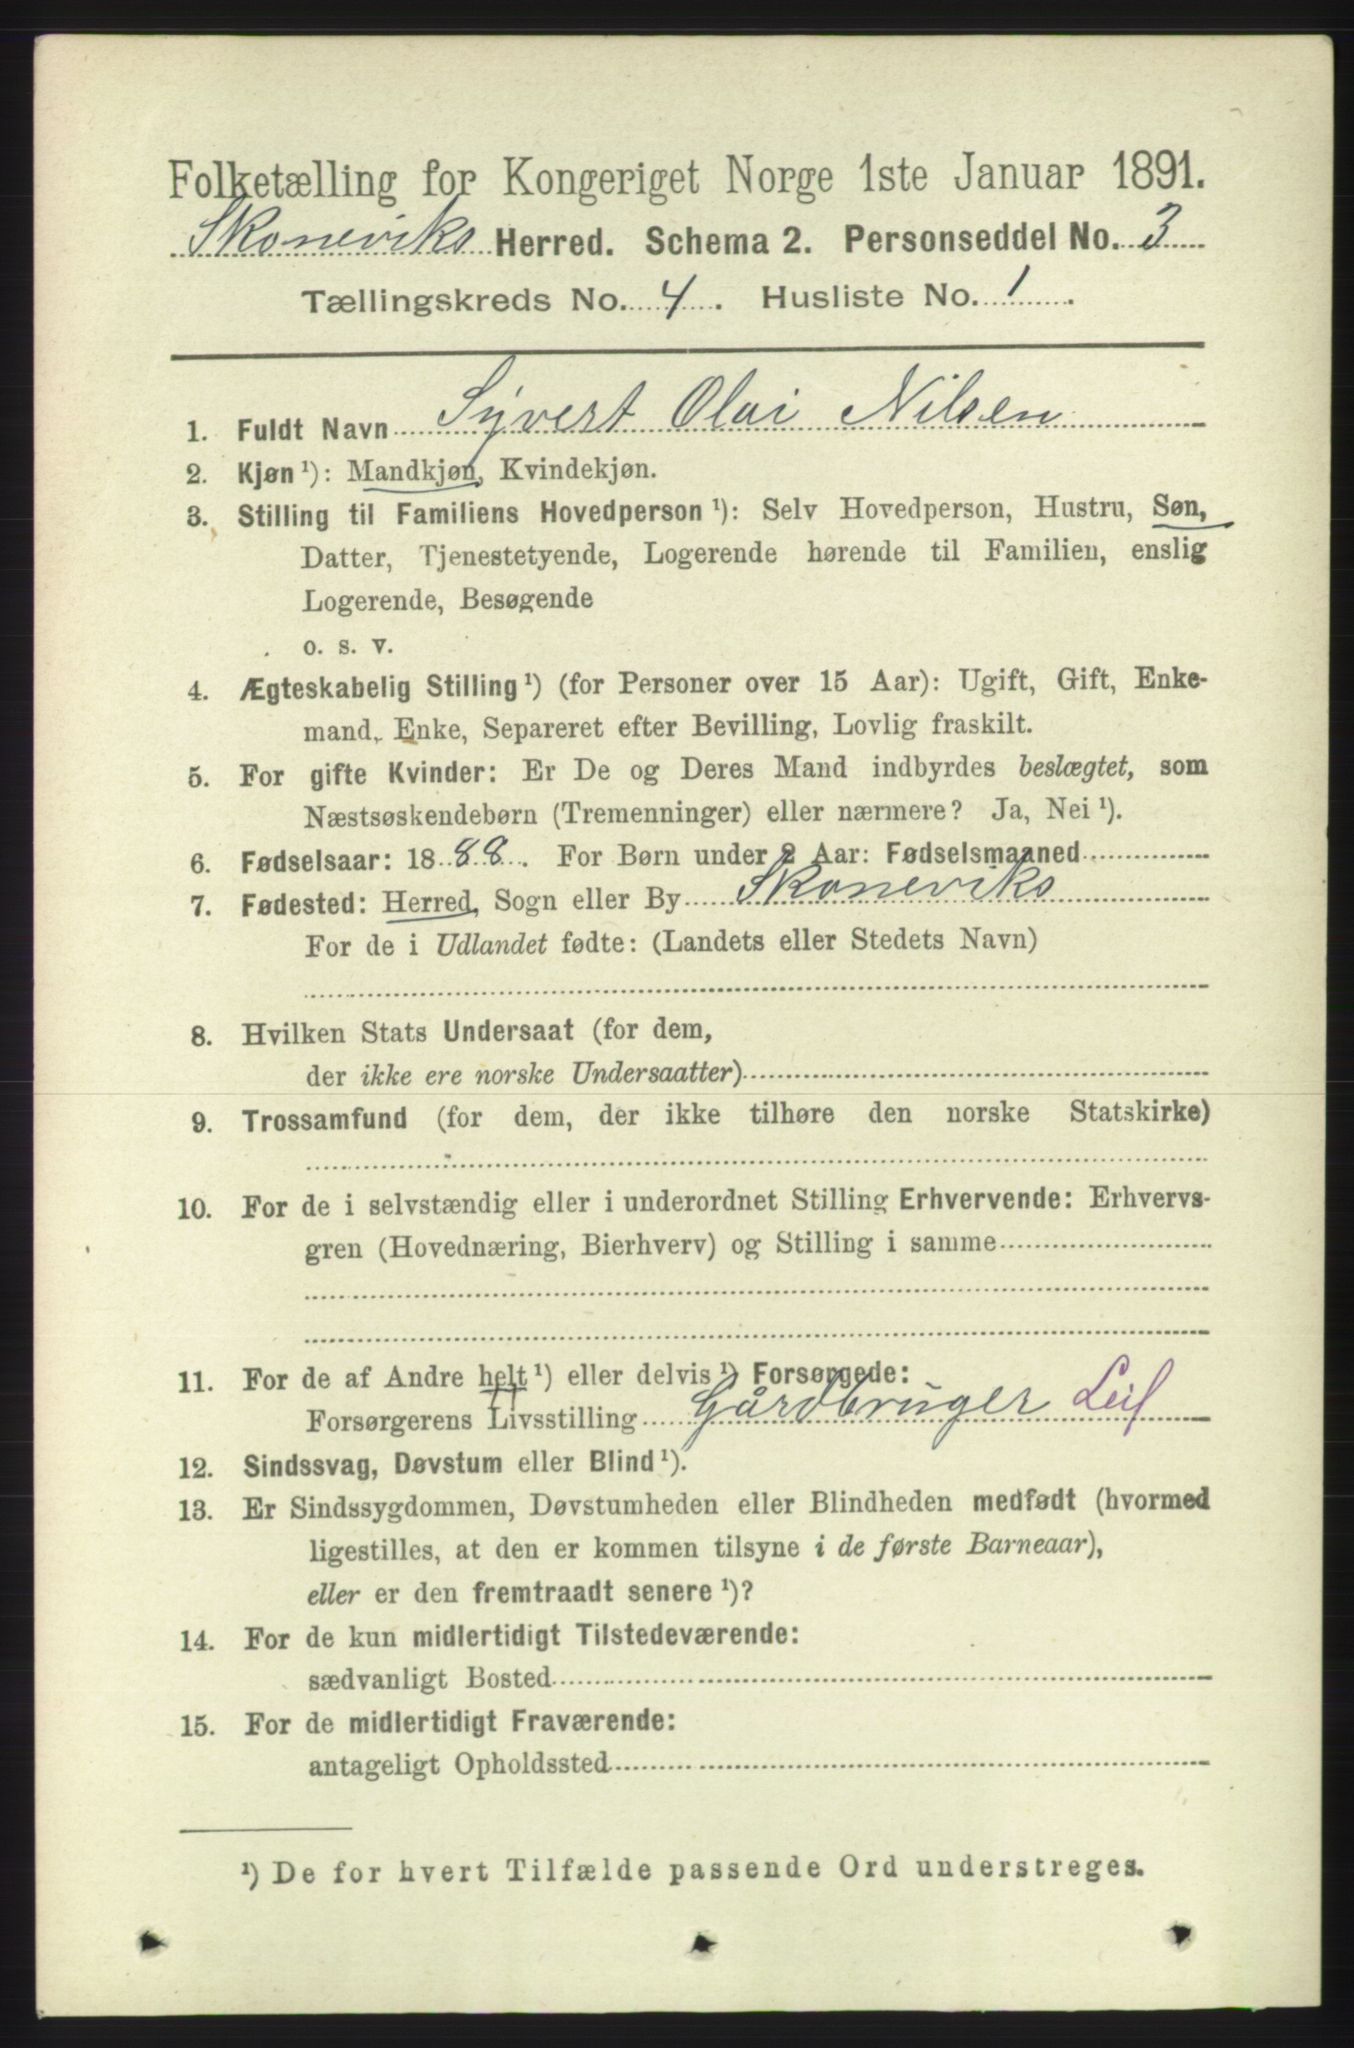 Folketælling for Kongeriget Norge 1ste Januar 1891.
Skoneviks Herred. Schema 2. Personseddel No. 3
Tællingskreds No. 4. Husliste No. 1.
1. Fuldt Navn Syvert Olai Nilsen
2. Kjøn ¹): Mandkjøn, Kvindekjøn.
3. Stilling til Familiens Hovedperson ¹): Selv Hovedperson, Hustru, Søn,
Datter, Tjenestetyende, Logerende hørende til Familien, enslig
Logerende, Besøgende
o. s. v.
4. Ægteskabelig Stilling ¹) (for Personer over 15 Aar): Ugift, Gift, Enke-
mand, Enke, Separeret efter Bevilling, Lovlig fraskilt.
5. For gifte Kvinder: Er De og Deres Mand indbyrdes beslægtet, som
Næstsøskendebørn (Tremenninger) eller nærmere? Ja, Nei ¹).
6. Fødselsaar: 1888. For Børn under 2 Aar: Fødselsmaaned
7. Fødested: Herred, Sogn eller By Skoneviks
For de i Udlandet fødte: (Landets eller Stedets Navn)
8. Hvilken Stats Undersaat (for dem,
der ikke ere norske Undersaatter)
9. Trossamfund (for dem, der ikke tilhøre den norske Statskirke)
10. For de i selvstændig eller i underordnet Stilling Erhvervende: Erhvervs-
gren (Hovednæring, Bierhverv) og Stilling i samme
11. For de af Andre helt ¹) eller delvis ¹) Forsørgede:
Forsørgerens Livsstilling Gårdbruger Leil
12. Sindssvag, Døvstum eller Blind ¹).
13. Er Sindssygdommen, Døvstumheden eller Blindheden medfødt (hvormed
ligestilles, at den er kommen tilsyne i de første Barneaar),
eller er den fremtraadt senere ¹)?
14. For de kun midlertidigt Tilstedeværende:
sædvanligt Bosted
15. For de midlertidigt Fraværende:
antageligt Opholdssted
¹) De for hvert Tilfælde passende Ord understreges.